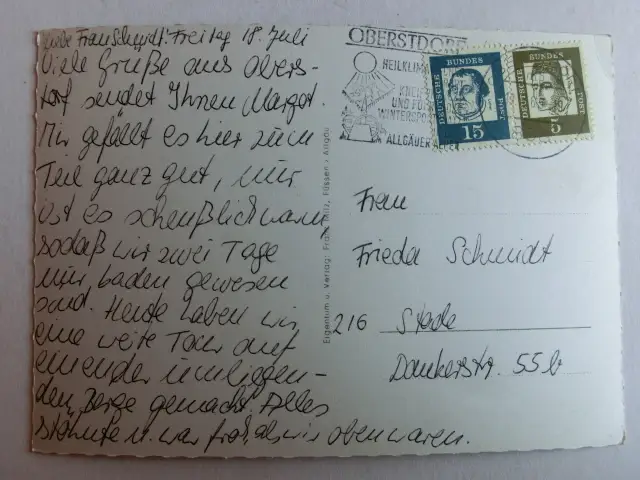 Liebe Frau Schmidt! Freitag 18. Juli
Viele Grüße aus Oberst-
dorf sendet Ihnen Margot.
Mir gefällt es hier zum
Teil ganz gut, nur
ist es scheußlich warm
sodaß wir zwei Tage
nur baden gewesen
sind. Heute haben wir
eine weite Tour auf
einender umliegen-
den Berge gemacht. Alles
stöhnte u. war froh, als wir oben waren.
Eigentum u. Verlag: Füssen i. Allgäu
OBERSTDORF
HEILKLIM
KNEI
UND
WINTERSPO
ALLGÄUER ALPEN
DEUTSCHE BUNDES POST
15
DEUTSCHE BUNDES POST
5
Frau
Frieda Schmidt
216 Stade
Dankerstr. 55b